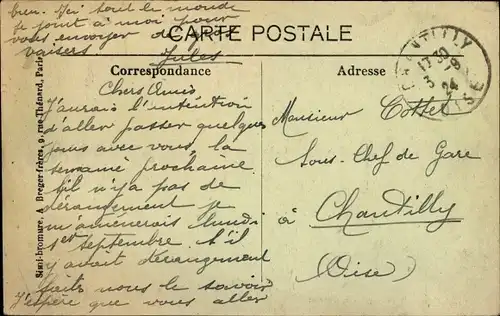 bien. Ici tout le monde
se joint à moi pour
vous envoyer de gros
baisers
Jules
CARTE POSTALE
Correspondance
Adresse
CHANTILLY
17 30
3 -9
24
OISE
Chers Amis
J'aurais l'intention
d'aller passer quelques
jours avec vous la
semaine prochaine.
S'il n'y a pas de
dérangement je
m'amènerais lundi
1er septembre. S'il
y avait dérangement
faites nous le savoir
J'espère que vous allez
Monsieur Cottet
Sous-Chef de Gare
à Chantilly
(Oise)
Simi-bromure, A. Breger frères, 9, rue Thénard, Paris